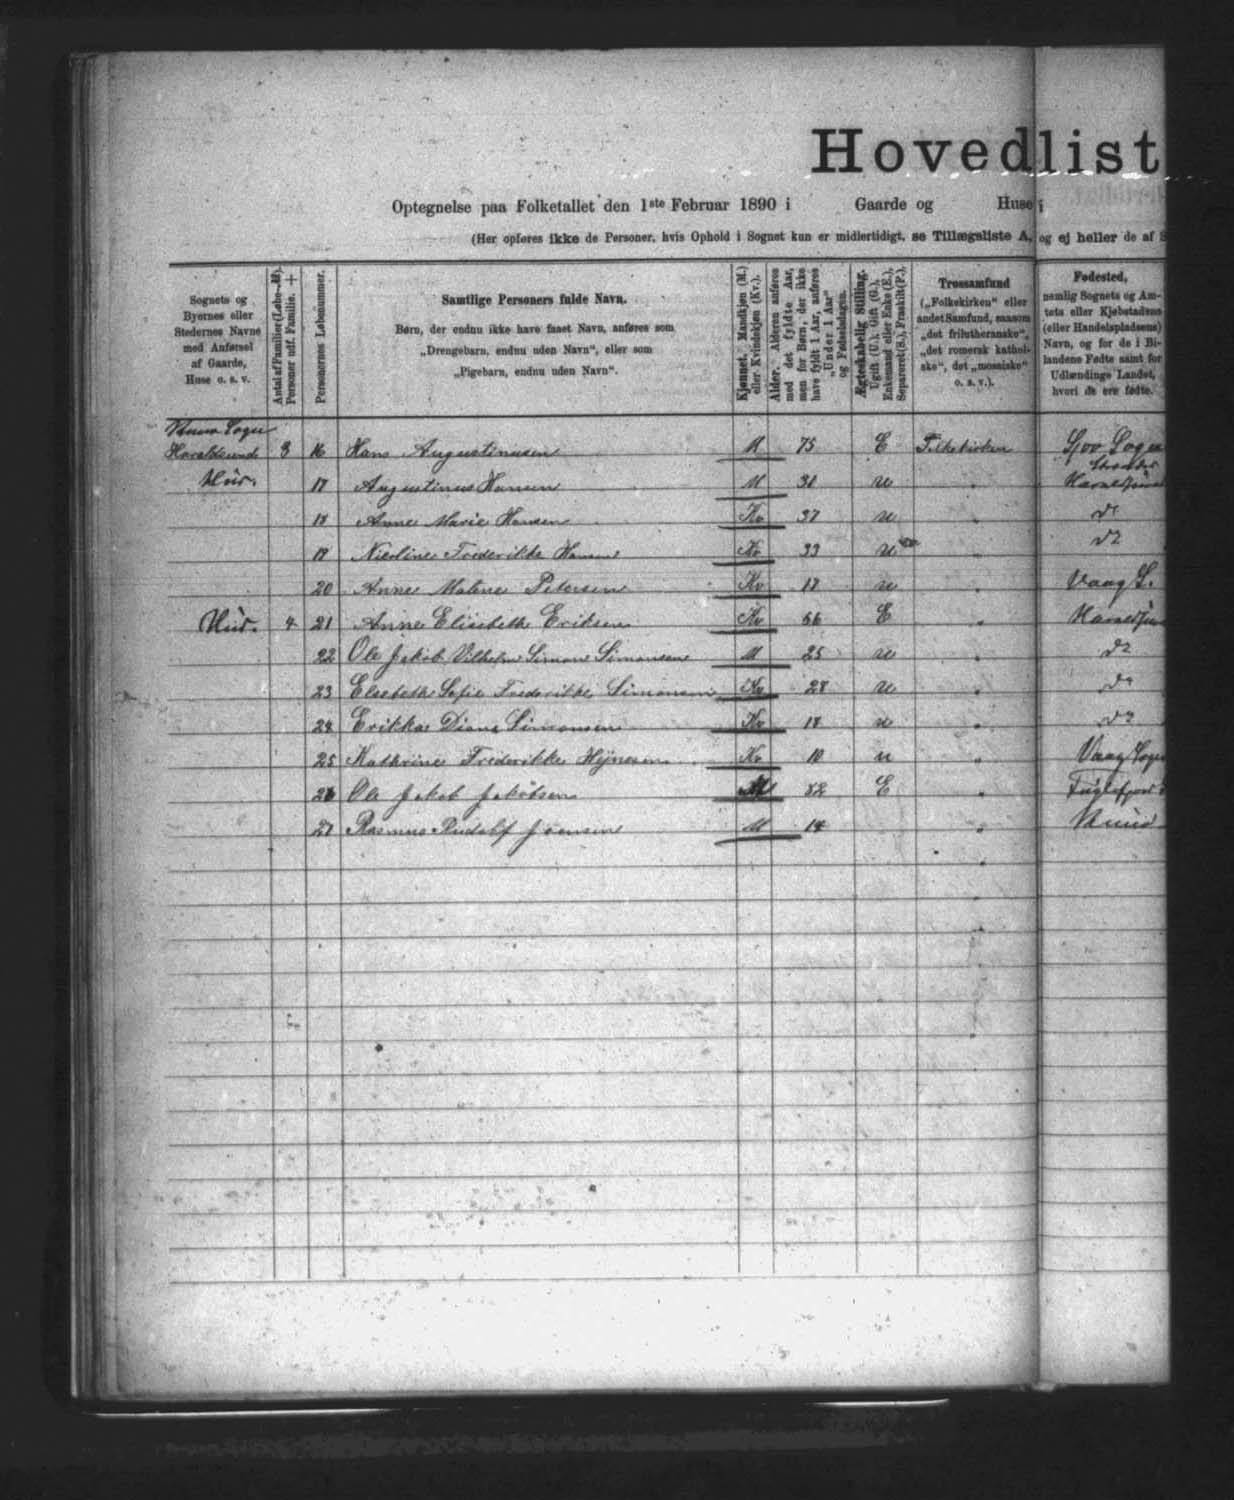 Hovedlist
Optegnelse paa Folketallet den 1ste Februar 1890 i Gaarde og Huse i
(Her opføres ikke de Personer, hvis Ophold i Sognet kun er midlertidigt, se Tillægsliste A, og ej heller de af S
Sognets og Byernes eller Stedernes Navne med Anførsel af Gaarde, Huse o. s. v.
Antal af Familier (Løbe-№). Personer udf. Familie. +
Personernes Løbenummer.
Samtlige Personers fulde Navn.
Børn, der endnu ikke have faaet Navn, anføres som
„Drengebarn, endnu uden Navn“, eller som
„Pigebarn, endnu uden Navn“.
Kjønnet. Mandkjøn (M.) eller Kvindekjøn (Kv.).
Alder. Alderen anføres med det fyldte Aar, men for Børn, der ikke have fyldt 1 Aar, anføres „Under 1 Aar“ og Fødselsdagen.
Ægteskabelig Stilling. Ugift (U.), Gift (G.), Enkemand eller Enke (E.), Separeret (S.), Fraskilt (F.).
Trossamfund („Folkekirken“ eller andet Samfund, saasom „det frilutheranske“, „det romersk katholske“, det „mosaiske“ o. s. v.).
Fødested, nemlig Sognets og Amtets eller Kjøbstadens (eller Handelspladsens) Navn, og for de i Bilandene Fødte samt for Udlændinge Landet, hvori de ere fødte.
Sogn
Haraldssund 3 16 Hans Augustinusen M 75 E Folkekirken Sogn
Hus. 17 Augustinus Hansen M 31 u
18 Anne Marie Hansen Kv 37 u do
19 Nicoline Frederikke Hansen Kv 33 u do
20 Anne Malene Petersen Kv u Vaag S.
Hus. 4 21 Anne Elisebeth Eriksen Kv 66 E
22 Ole Jakob Vilhelm Simon Simonsen M 25 u do
23 Elsebeth Sofie Frederikke Simonsen Kv 28 u do
24 Erikka Diana Simonsen Kv 18 u do
25 Kathrine Frederikke Hejnesen Kv 10 u Vaag Sogn
26 Ole Jakob Jakobsen M 82 E Fuglefjord
27 Rasmus Rudolf Joensen M 14